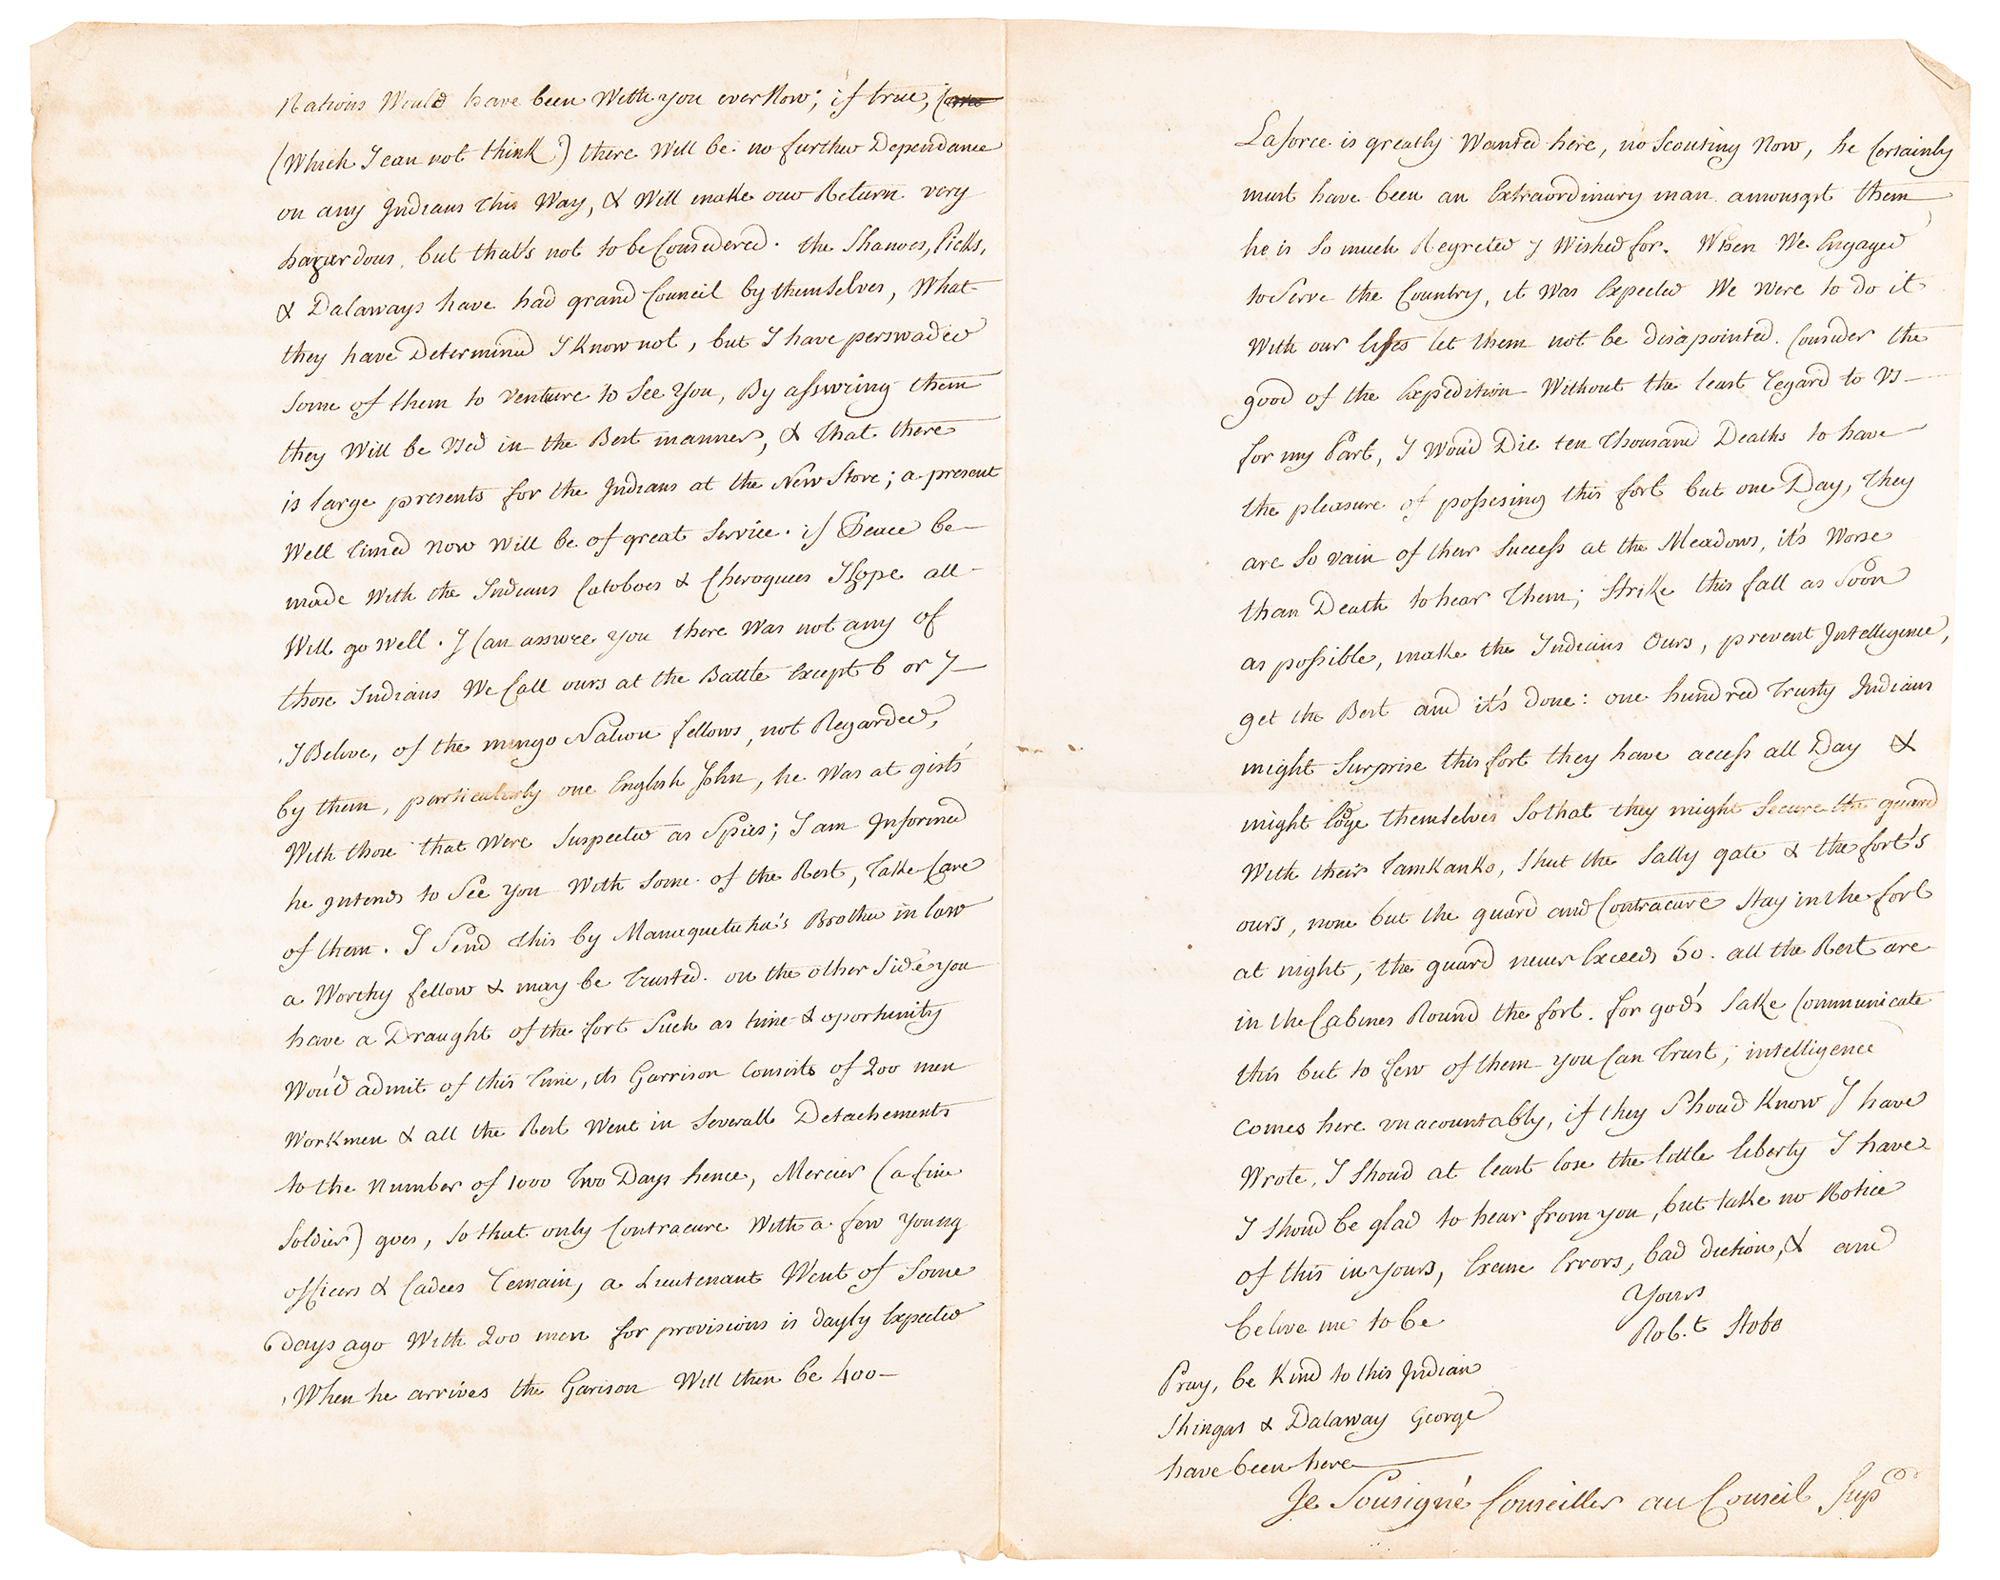 Nations Would have been With you ever Now; if true,
(Which I can not think) there Will be no further Dependance
on any Indians this Way, & Will make our Return very
hazardous, but that's not to be Considered. the Shanoes, Picks,
& Dalaways have had grand Council by themselves, What
they have Determined I Know not, but I have perswaded
Some of them to Venture to See You, By assuring them
they Will be Used in the Best manner, & that there
is large presents for the Indians at the New Store; a present
Well timed now will be of great Service. if Peace be
made With the Indians Catoboes & Cheroquees I Hope all
Will go well. I Can assure you there Was not any of
those Indians We Call ours at the Battle Except 6 or 7
I Belive, of the mingo Nation fellows, not Regarded,
by them, particularly one English John, he Was at gist's
With those that Were Suspected as Spies; I am Informed
he intends to See you With Some of the Rest, Take Care
of them. I Send this by Manequeteha's Brother in law
a Worthy fellow & may be Trusted. on the other Side you
have a Draught of the fort Such as time & oportunity
Wou'd admit of this Time, its Garrison Consists of 200 men
Workmen & all the Rest Went in Severall Detachements
to the Number of 1000 Two Days hence, Mercier (a fine
Soldier) goes, So that only Contracure With a few Young
officers & Cadees remain, a Lieutenant Went of Some
days ago With 200 men for provisions is dayly Expected
When he arrives the Garison Will then be 400
Laforce is greatly Wanted here, no Scouting Now, he Certainly
must have been an Extraordinary man amonsgst them
he is So much Regreted & Wished for. When We Engaged
to Serve the Country, it Was Expected We Were to do it
With our lifes let them not be disapointed. Consider the
good of the Expedition Without the least regard to Us
for my Part, I Wou'd Die ten Thousand Deaths to have
the pleasure of possesing this fort but one Day, They
are So vain of their Success at the Meadows, it's Worse
than Death to hear Them; Strike this fall as Soon
as possible, make the Indians Ours, prevent Intelligence,
get the Best and it's done: one hundred Trusty Indians
might Surprise this fort they have access all Day &
might loge themselves So that they might Secure the guard
With their Tamkanko, Shut the Sally gate & the fort's
ours, none but the guard and Contracure Stay in the fort
at night, the guard never Exceeds 50. all the Rest are
in the Cabines Round the fort. for god's Sake Communicate
this but to few of them you Can Trust; intelligence
comes here unacountably, if they Shoud Know I have
Wrote, I Shoud at least lose the little liberty I have
I Shoud be glad to hear from you, but take no Notice
of this in yours, Excuse Errors, bad diction, & and
belive me to be Yours
Rob.t Stobo
Pray, be Kind to this Indian
Shingas & Dalaway George
have been here
Je Sousigné Conseiller au Conseil Sup